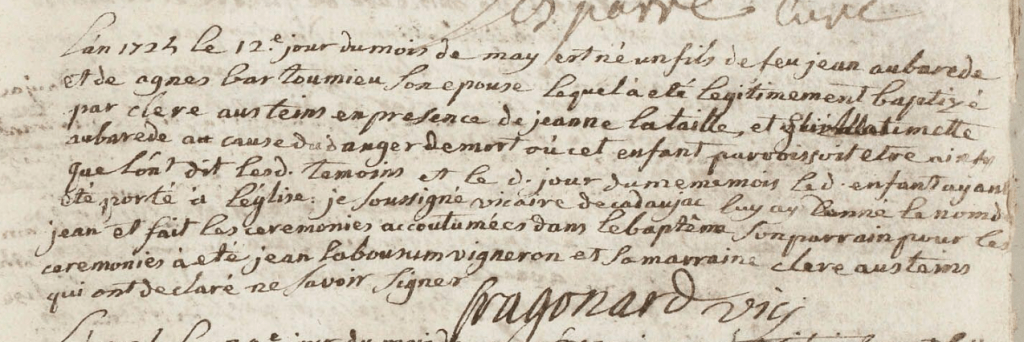 Lesparre Curé
L'an 1724 le 12.e jour du mois de may est né un fils de feu jean aubarede
et de agnes bartoumieu son epouse lequel à eté legitimement baptizé
par clere austeins en presence de jeanne lataille, et timette
aubarede au cause du danger de mort où cet enfant paroissoit etre
que l'ont dit lesd. temoins et le d. jour du mememois led. enfant ayant
été porté à léglise: je soussigné vicaire de cadaujac luy ay donné le nom d
jean et fait les ceremonies accoutumées dans le baptême son parrain pour les
ceremonies à eté jean labounum vigneron et sa marraine clere austeins
qui ont declaré ne savoir signer
fragonard vic